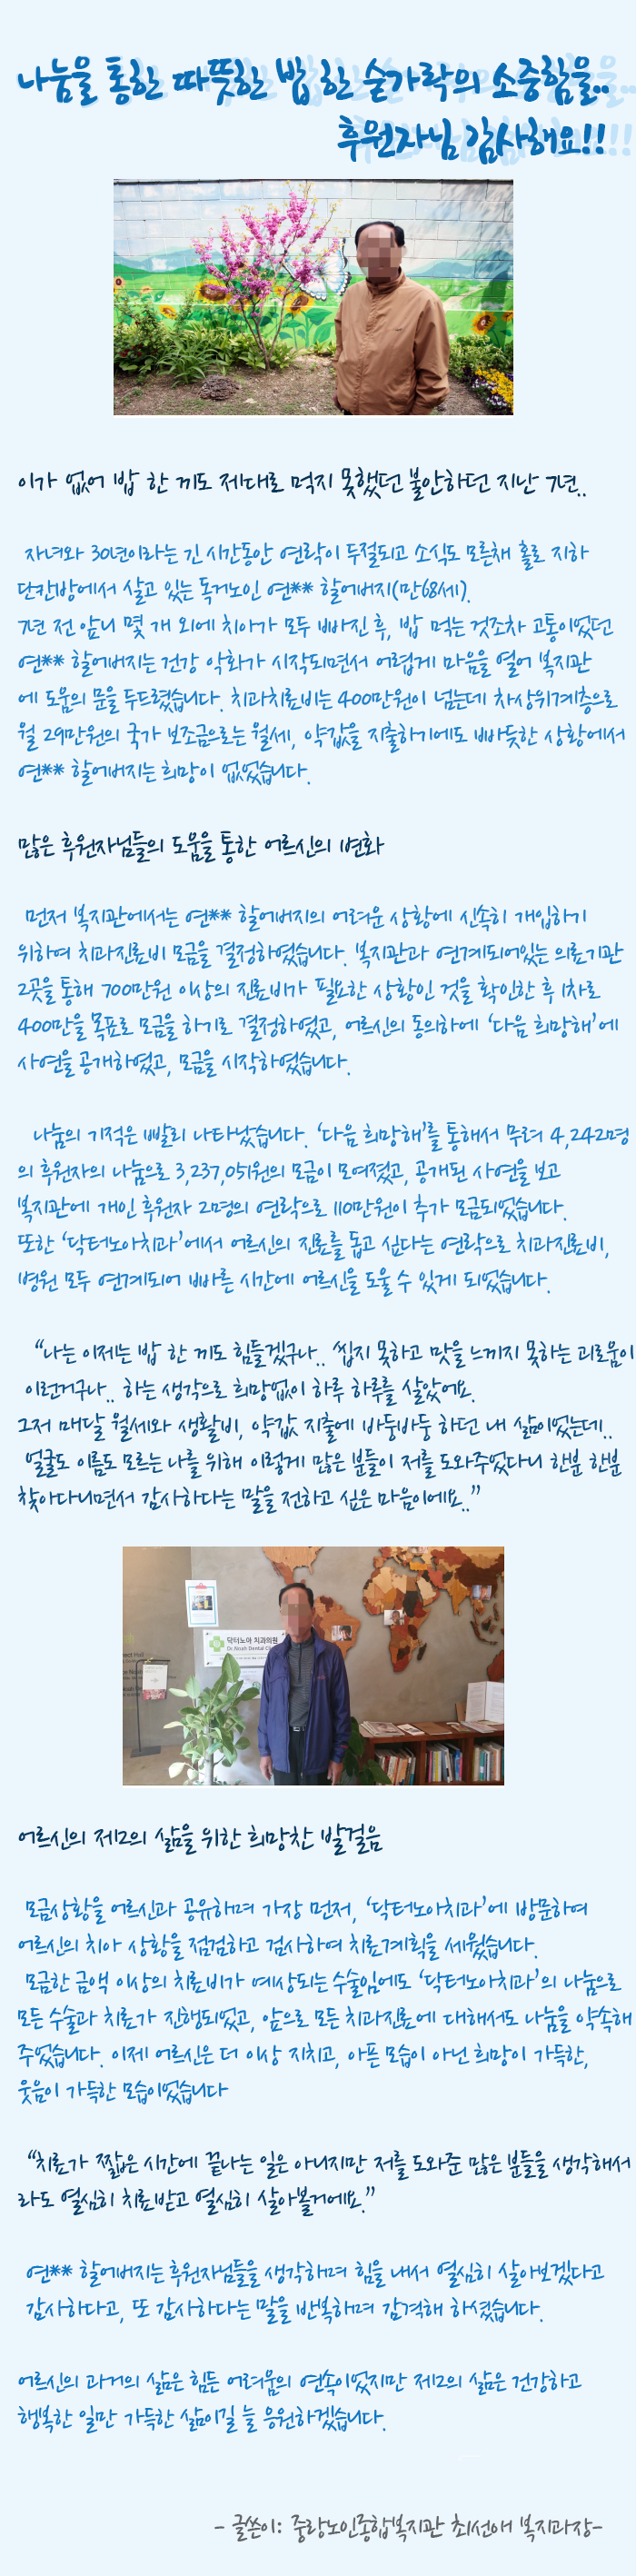 나눔을 통한 따뜻한 밥 한 숟가락의 소중함을..
후원자님 감사해요!!
이가 없어 밥 한 끼도 제대로 먹지 못했던 불안하던 지난 7년..
자녀와 30년이라는 긴 시간동안 연락이 두절되고 소식도 모른채 홀로 지하
단칸방에서 살고 있는 독거노인 연** 할아버지(만68세).
7년 전 앞니 몇 개 외에 치아가 모두 빠진 후, 밥 먹는 것조차 고통이었던
연** 할아버지는 건강 악화가 시작되면서 어렵게 마음을 열어 복지관
에 도움의 문을 두드렸습니다. 치과치료비는 400만원이 넘는데 차상위계층으로
월 29만원의 국가 보조금으로는 월세, 약값을 지출하기에도 빠듯한 상황에서
연** 할아버지는 희망이 없었습니다.
많은 후원자님들의 도움을 통한 어르신의 변화
먼저 복지관에서는 연** 할아버지의 어려운 상황에 신속히 개입하기
위하여 치과진료비 모금을 결정하였습니다. 복지관과 연계되어있는 의료기관
2곳을 통해 700만원 이상의 진료비가 필요한 상황인 것을 확인한 후 1차로
400만을 목표로 모금을 하기로 결정하였고, 어르신의 동의하에 ‘다음 희망해’에
사연을 공개하였고, 모금을 시작하였습니다.
나눔의 기적은 빨리 나타났습니다. ‘다음 희망해’를 통해서 무려 4,242명
의 후원자의 나눔으로 3,237,051원의 모금이 모여졌고, 공개된 사연을 보고
복지관에 개인 후원자 2명의 연락으로 110만원이 추가 모금되었습니다.
또한 ‘닥터노아치과’에서 어르신의 진료를 돕고 싶다는 연락으로 치과진료비,
병원 모두 연계되어 빠른 시간에 어르신을 도울 수 있게 되었습니다.
“나는 이제는 밥 한 끼도 힘들겠구나.. 씹지 못하고 맛을 느끼지 못하는 괴로움이
이런거구나.. 하는 생각으로 희망없이 하루 하루를 살았어요.
그저 매달 월세와 생활비, 약값 지출에 바둥바둥 하던 내 삶이었는데..
얼굴도 이름도 모르는 나를 위해 이렇게 많은 분들이 저를 도와주었다니 한분 한분
찾아다니면서 감사하다는 말을 전하고 싶은 마음이에요..”
닥터노아 치과의원
Dr. Noah Dental Cli
어르신의 제2의 삶을 위한 희망찬 발걸음
모금상황을 어르신과 공유하며 가장 먼저, ‘닥터노아치과’에 방문하여
어르신의 치아 상황을 점검하고 검사하여 치료계획을 세웠습니다.
모금한 금액 이상의 치료비가 예상되는 수술임에도 ‘닥터노아치과’의 나눔으로
모든 수술과 치료가 진행되었고, 앞으로 모든 치과진료에 대해서도 나눔을 약속해
주었습니다. 이제 어르신은 더 이상 지치고, 아픈 모습이 아닌 희망이 가득한,
웃음이 가득한 모습이었습니다
“치료가 짧은 시간에 끝나는 일은 아니지만 저를 도와준 많은 분들을 생각해서
라도 열심히 치료받고 열심히 살아볼거에요.”
연** 할아버지는 후원자님들을 생각하며 힘을 내서 열심히 살아보겠다고
감사하다고, 또 감사하다는 말을 반복하며 감격해 하셨습니다.
어르신의 과거의 삶은 힘든 어려움의 연속이었지만 제2의 삶은 건강하고
행복한 일만 가득한 삶이길 늘 응원하겠습니다.
- 글쓴이: 중랑노인종합복지관 최선애 복지과장-